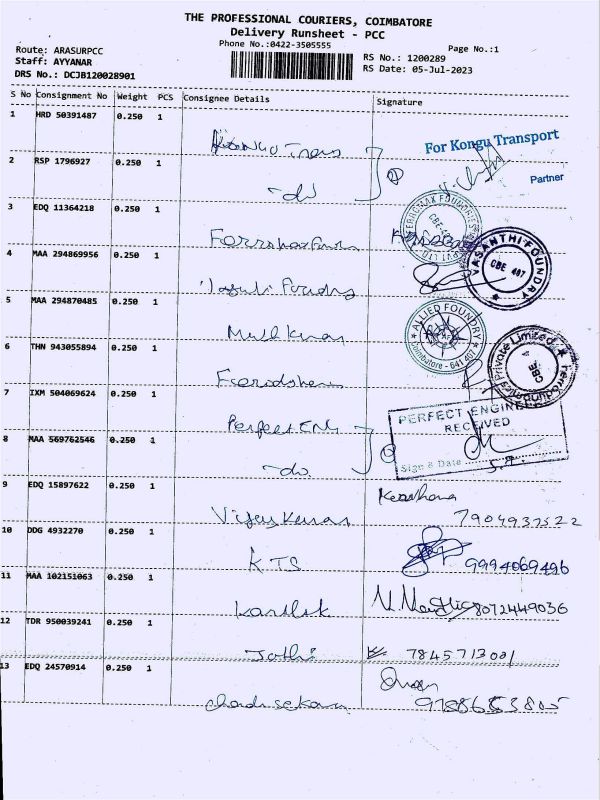 THE PROFESSIONAL COURIERS, COIMBATORE
Delivery Runsheet - PCC
Phone No.:0422-3505555
Page No.:1
Route: ARASURPCC
Staff: AYYANAR
DRS No.: DCJB120028901
RS No.: 1200289
RS Date: 05-Jul-2023
S No Consignment No Weight PCS Consignee Details Signature
1 HRD 50391487 0.250 1
For Kongu Transport
Partner
2 RSP 1796927 0.250 1
- do
3 EDQ 11364218 0.250 1
VASANTHI FOUNDRY
CBE 407
4 MAA 294869956 0.250 1
5 MAA 294870485 0.250 1
ALLIED FOUNDRY
Coimbatore - 641 407
6 THN 943055894 0.250 1
Private Limited
CBE
7 IXM 504069624 0.250 1
Perfect ENG
PERFECT ENGINE
RECEIVED
Sign & Date
8 MAA 569762546 0.250 1
- do
9 EDQ 15897622 0.250 1
Vijay Kumar
7904937522
10 DDG 4932270 0.250 1
KTS
9994069496
11 MAA 102151063 0.250 1
Karthik
8072449036
12 TDR 950039241 0.250 1
Jothi
7845713001
13 EDQ 24570914 0.250 1